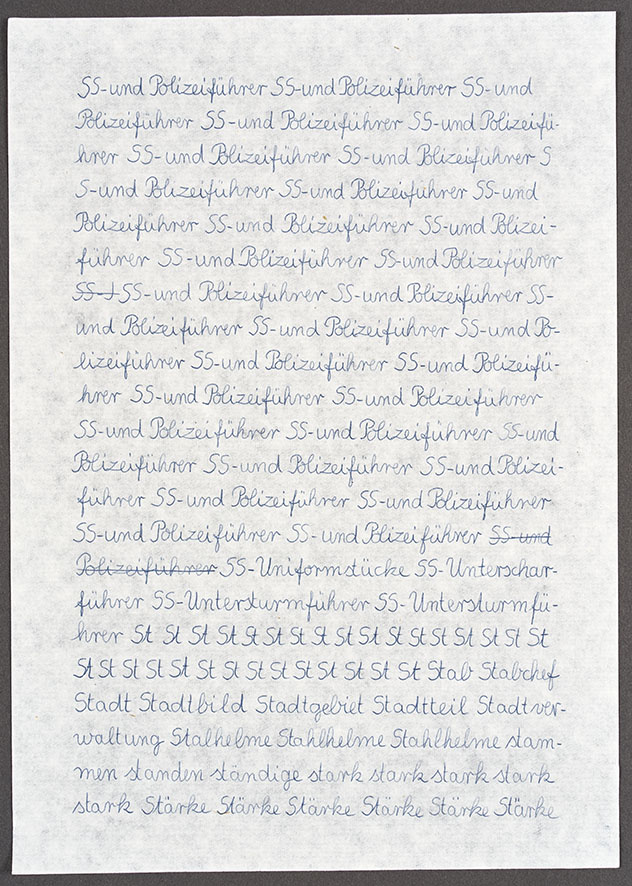 SS-und Polizeiführer SS-und Polizeiführer SS-und
Polizeiführer SS-und Polizeiführer SS-und Polizeifü-
hrer SS-und Polizeiführer SS-und Polizeiführer S
S-und Polizeiführer SS-und Polizeiführer SS-und
Polizeiführer SS-und Polizeiführer SS-und Polizei-
führer SS-und Polizeiführer SS-und Polizeiführer
SS-J SS-und Polizeiführer SS-und Polizeiführer SS-
und Polizeiführer SS-und Polizeiführer SS-und Po-
lizeiführer SS-und Polizeiführer SS-und Polizeifü-
hrer SS-und Polizeiführer SS-und Polizeiführer
SS-und Polizeiführer SS-und Polizeiführer SS-und
Polizeiführer SS-und Polizeiführer SS-und Polizei-
führer SS-und Polizeiführer SS-und Polizeiführer
SS-und Polizeiführer SS-und Polizeiführer SS-und
Polizeiführer SS-Uniformstücke SS-Unterschar-
führer SS-Untersturmführer SS-Untersturmfü-
hrer St St St St St St St St St St St St St St St St
St St St St St St St St St St St St St Stab Stabchef
Stadt Stadtbild Stadtgebiet Stadtteil Stadtver-
waltung Stalhelme Stahlhelme Stahlhelme stam-
men standen ständige stark stark stark stark
stark Stärke Stärke Stärke Stärke Stärke Stärke